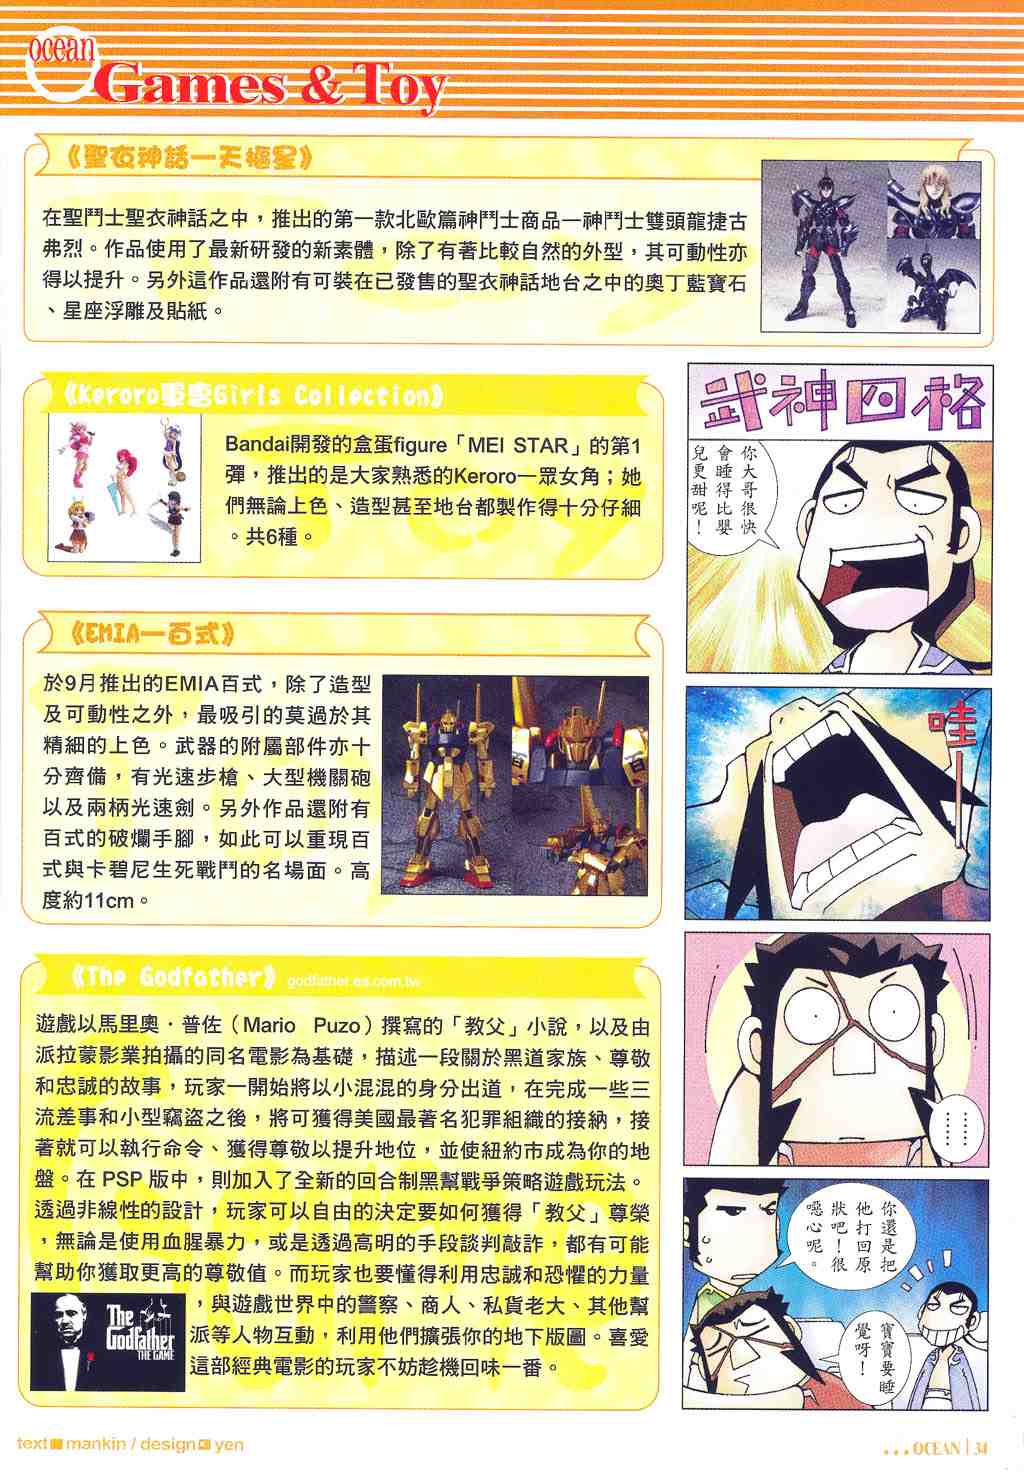 ocean
Games & Toy
《聖衣神話—天樞星》
在聖鬥士聖衣神話之中，推出的第一款北歐篇神鬥士商品—神鬥士雙頭龍捷古
弗烈。作品使用了最新研發的新素體，除了有著比較自然的外型，其可動性亦
得以提升。另外這作品還附有可裝在已發售的聖衣神話地台之中的奧丁藍寶石
、星座浮雕及貼紙。
《Keroro軍曹Girls Collection》
Bandai開發的盒蛋figure「MEI STAR」的第1
彈，推出的是大家熟悉的Keroro一眾女角；她
們無論上色、造型甚至地台都製作得十分仔細
。共6種。
《EMIA—百式》
於9月推出的EMIA百式，除了造型
及可動性之外，最吸引的莫過於其
精細的上色。武器的附屬部件亦十
分齊備，有光速步槍、大型機關砲
以及兩柄光速劍。另外作品還附有
百式的破爛手腳，如此可以重現百
式與卡碧尼生死戰鬥的名場面。高
度約11cm。
《The Godfather》 godfather.ea.com.tw
遊戲以馬里奧．普佐（Mario Puzo）撰寫的「教父」小說，以及由
派拉蒙影業拍攝的同名電影為基礎，描述一段關於黑道家族、尊敬
和忠誠的故事，玩家一開始將以小混混的身分出道，在完成一些三
流差事和小型竊盜之後，將可獲得美國最著名犯罪組織的接納，接
著就可以執行命令、獲得尊敬以提升地位，並使紐約市成為你的地
盤。在 PSP 版中，則加入了全新的回合制黑幫戰爭策略遊戲玩法。
透過非線性的設計，玩家可以自由的決定要如何獲得「教父」尊榮
，無論是使用血腥暴力，或是透過高明的手段談判敲詐，都有可能
幫助你獲取更高的尊敬值。而玩家也要懂得利用忠誠和恐懼的力量
，與遊戲世界中的警察、商人、私貨老大、其他幫
派等人物互動，利用他們擴張你的地下版圖。喜愛
這部經典電影的玩家不妨趁機回味一番。
The
Godfather
THE GAME
武神四格
你大哥很快
會睡得比嬰
兒更甜呢！
哇—
……
……
你還是把
他打回原
狀吧！很
噁心呢。
寶寶要睡
覺呀！
text mankin / design yen
...OCEAN | 34